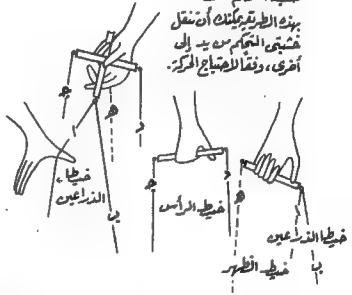 بهذه الطريقة يمكنك أن تنقل
خشبتي التحكم من يد إلى
أخرى، وفقًا لاحتياج الحركة.
جـ
هـ
د
خيطا
الذراعين
ب
جـ
د
خيط الرأس
هـ
خيطا الذراعين
خيط الظهر
ب